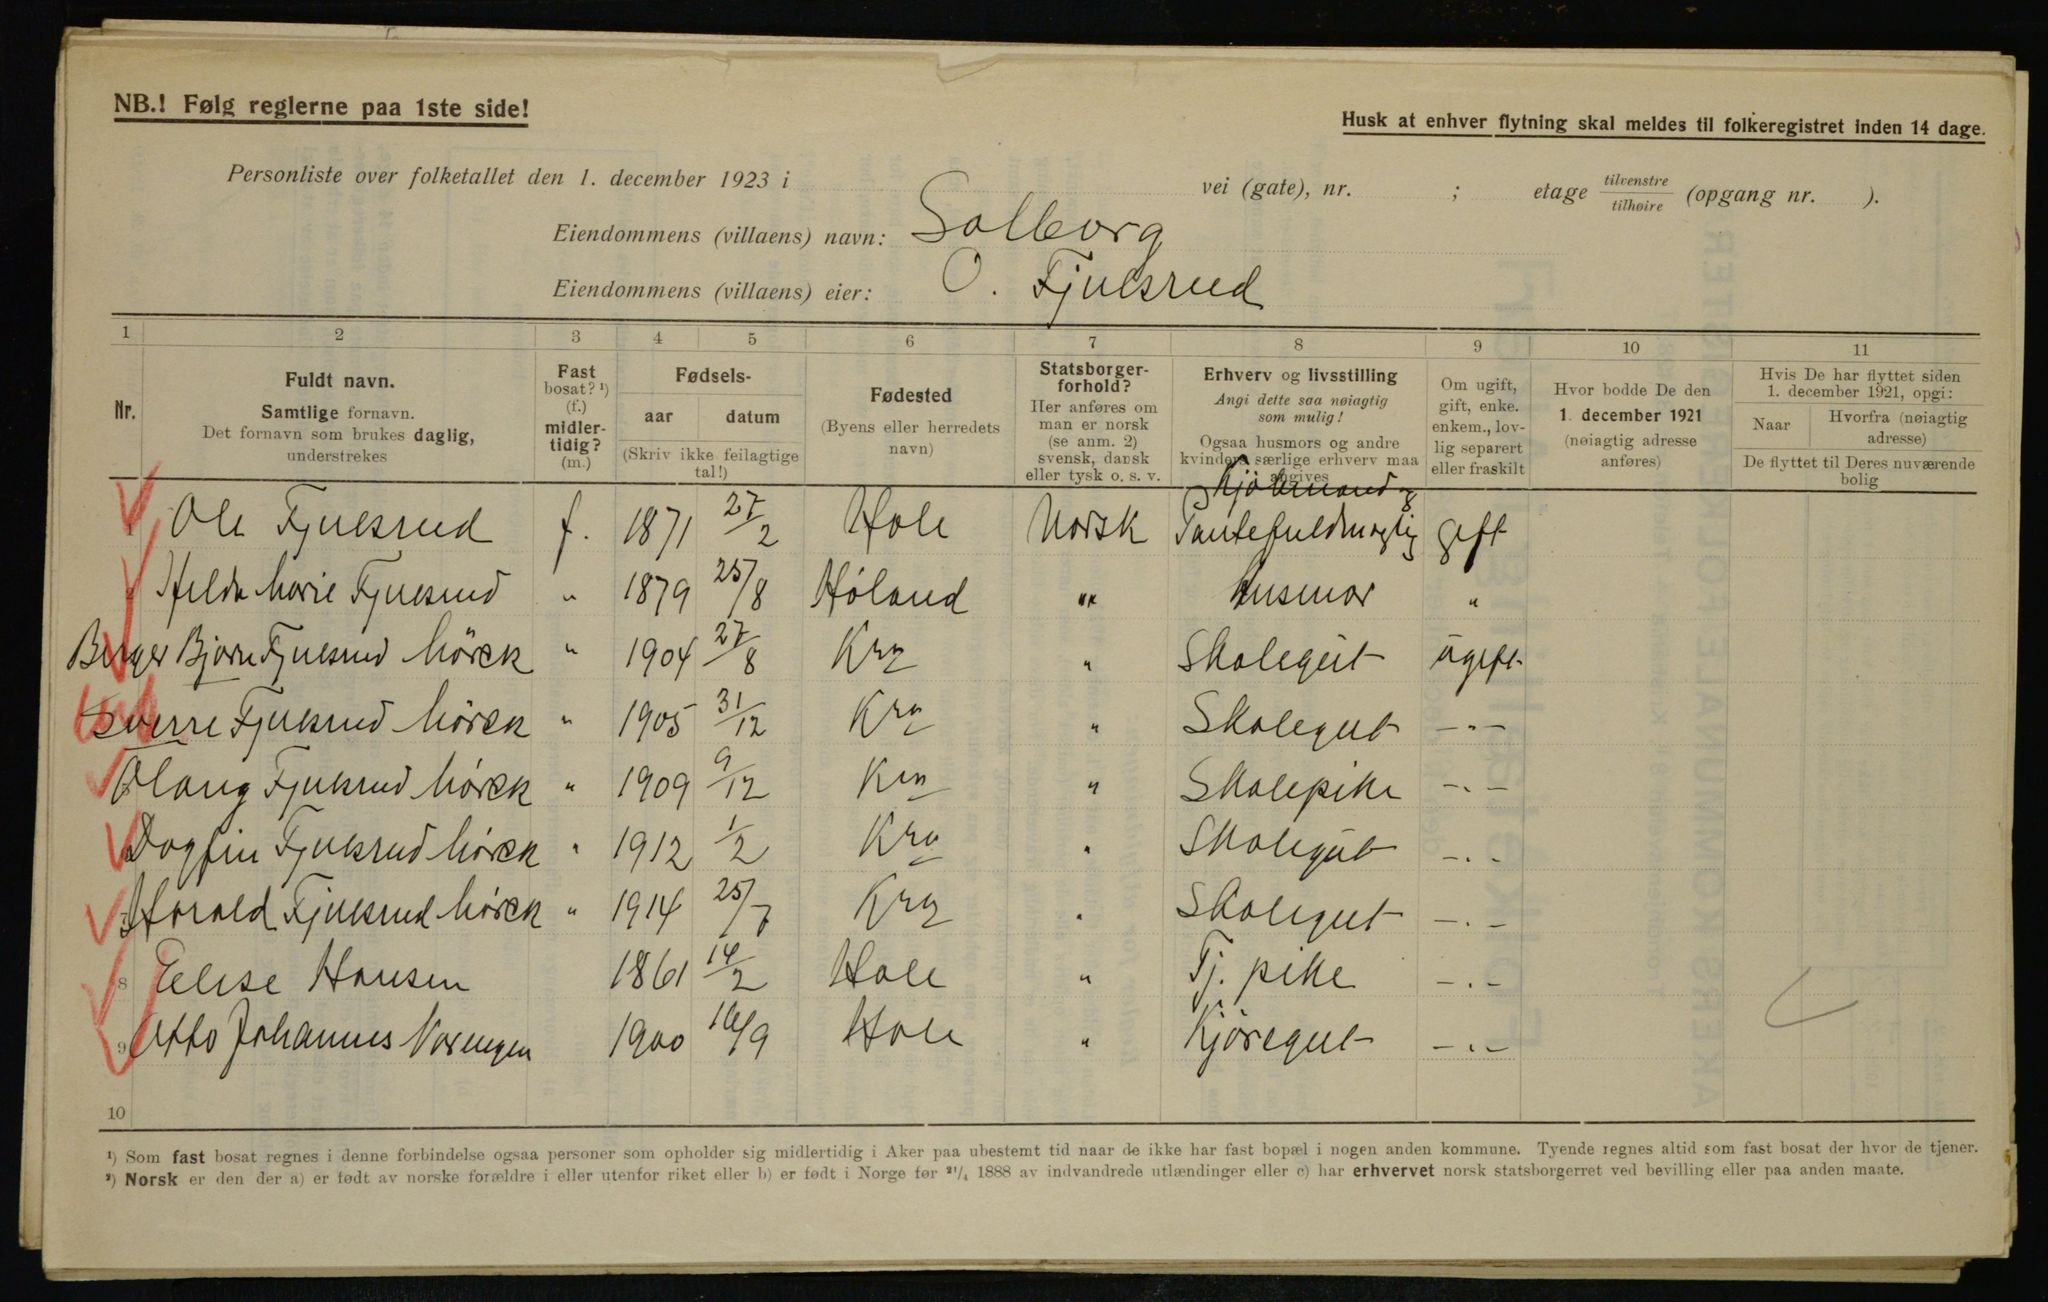 NB.! Følg reglerne paa 1ste side!
Husk at enhver flytning skal meldes til folkeregistret inden 14 dage.
Personliste over folketallet den 1. december 1923 i vei (gate), nr. ; etage tilvenstre tilhøire (opgang nr. ).
Eiendommens (villaens) navn: Solborg
Eiendommens (villaens) eier: O. Fjulsrud
1 2 3 4 5 6 7 8 9 10 11
Nr.
Fuldt navn.
Samtlige fornavn.
Det fornavn som brukes daglig,
understrekes
Fast
bosat? ¹)
(f.)
midler-
tidig?
(m.)
Fødsels-
aar datum
(Skriv ikke feilagtige
tal!)
Fødested
(Byens eller herredets
navn)
Statsborger-
forhold?
Her anføres om
man er norsk
(se anm. 2)
svensk, dansk
eller tysk o. s. v.
Erhverv og livsstilling
Angi dette saa nøiagtig
som mulig!
Ogsaa husmors og andre
kvinders særlige erhverv maa
angives
Om ugift,
gift, enke.
enkem., lov-
lig separert
eller fraskilt
Hvor bodde De den
1. december 1921
(nøiagtig adresse
anføres)
Hvis De har flyttet siden
1. december 1921, opgi:
Naar
Hvorfra (nøiagtig
adresse)
De flyttet til Deres nuværende
bolig
Kjøbmand og
Ole Fjulsrud f. 1871 27/2 Hole Norsk Pantefuldmægtig gift
Hilda Marie Fjulsrud " 1879 25/8 Høland " Husmor "
Birger Bjørn Fjulsrud Mörck " 1904 27/8 Kra " Skolegut ugift
Sverre Fjulsrud Mörck " 1905 31/12 Kra " Skolegut -"-
Olaug Fjulsrud Mörck " 1909 9/12 Kra " Skolepike -"-
Dagfin Fjulsrud Mörck " 1912 1/2 Kra " Skolegut -"-
7 Harald Fjulsrud Mörck " 1914 25/7 Kra " Skolegut -"-
8 Elise Hansen 1861 14/2 Hole " Tj. pike -"-
9 Otto Johannes 1900 16/9 Hole " Kjöregut -"-
10
¹) Som fast bosat regnes i denne forbindelse ogsaa personer som opholder sig midlertidig i Aker paa ubestemt tid naar de ikke har fast bopæl i nogen anden kommune. Tyende regnes altid som fast bosat der hvor de tjener.
²) Norsk er den der a) er født av norske forældre i eller utenfor riket eller b) er født i Norge før ²¹/₄ 1888 av indvandrede utlændinger eller c) har erhvervet norsk statsborgerret ved bevilling eller paa anden maate.